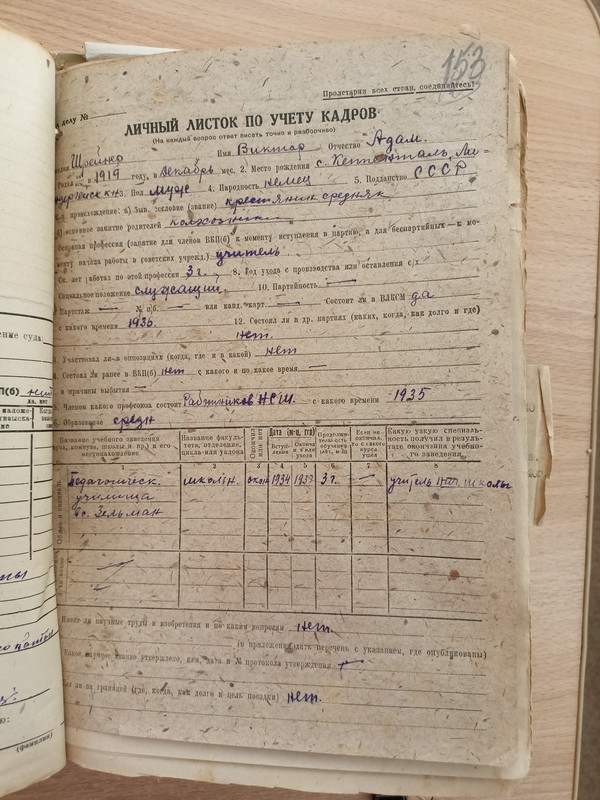 153
Пролетарии всех стран, соединяйтесь!
делу №
ЛИЧНЫЙ ЛИСТОК ПО УЧЕТУ КАДРОВ
(На каждый вопрос ответ писать точно и разборчиво)
Имя Виктор Отчество Адам.
1919 году, в декабрь мес. 2. Место рождения с.
3. Пол муж 4. Народность немец 5. Подданство СССР
происхождение: а) быв. сословие (звание) крестьянин средняк
основное занятие родителей колхозники
профессия (занятие для членов ВКП(б) к моменту вступления в партию, а для беспартийных — к мо-
менту начала работы в советских учрежд.) учитель
работал по этой профессии 3 г. 8. Год ухода с производства или оставления с/х —
Социальное положение служащий 10. Партийность —
Партстаж — № п/б. — или канд. карт — Состоит ли в ВЛКСМ да
с какого времени 1936. 12. Состоял ли в др. партиях (каких, когда, как долго и где)
нет.
Участвовал ли в оппозициях (когда, где и в какой) нет
Состоял ли ранее в ВКП(б) нет с какого и по какое время —
и причины выбытия —
Членом какого профсоюза состоит Работников НСШ. с какого времени 1935
Образование средн
Название учебного заведения Название факуль- Окончил или нет Дата (м-ц, год) Продолжи- Если не Какую узкую специаль-
тета, отделения, тельность окончил, ность получил в резуль-
цикла или уклона обучения то с какого тате окончания учебно-
курса ушел го заведения
1 2 3 4 5 6 7 8
Педагогическ. школьн. окон. 1934 1937 3 г. — учитель нач. школы
училища
с. Зельман
Имеет ли научные труды и изобретения и по каким вопросам нет.
(в приложении дать перечень с указанием, где опубликованы)
Какое научное звание утверждено, кем, дата и № протокола утверждения —
ли за границей (где, когда, как долго и цель поездки) нет.
(фамилия)